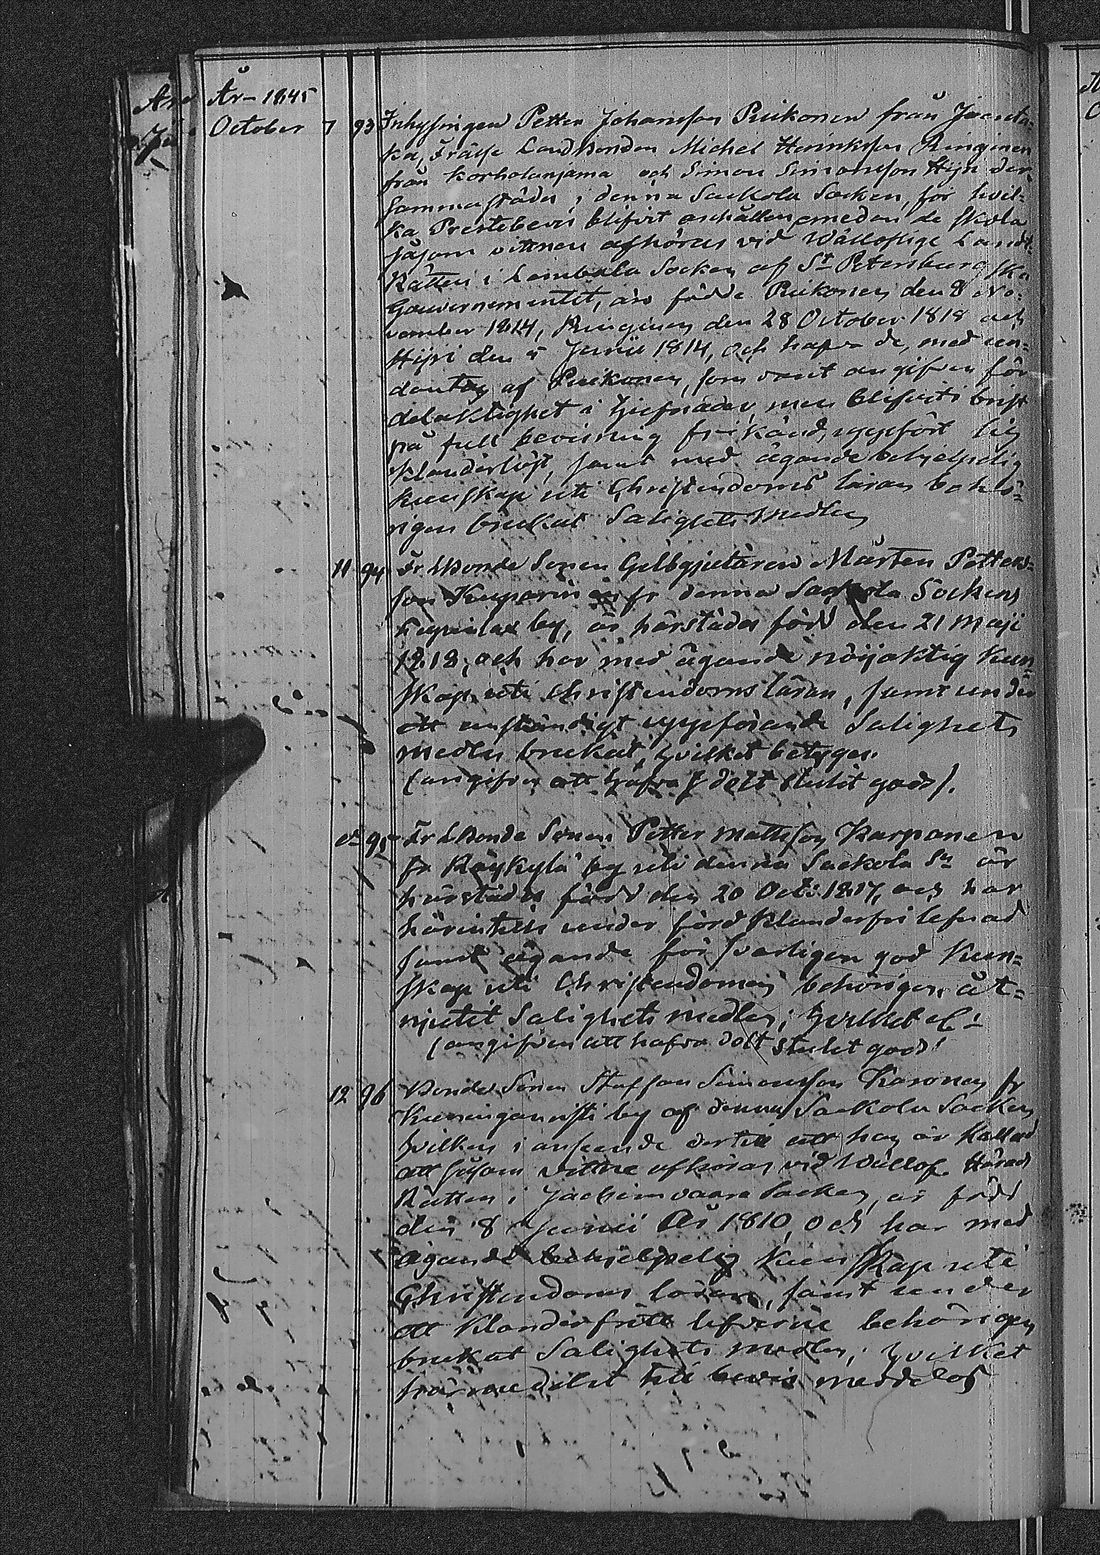 År 1845
October 7 93 Inhysingen Petter Johansson Pukonen från
ka, Frälse Landbonden Michel Henriksson Ringinen
från Korholanjama och Simon Simonsson Hyri der
sammastädes i denna Sackola Socken, för hvil-
ka Prestebevis blifvit anhållen, medan de skola
såsom vittnen afhöras vid Wälloflige Landt
Rätten i Lembala Socken af St Petersburgska
Gouvernementet, äro födde Pukonen den 8 No-
vember 1814, Ringinen den 28 October 1818 och
Hyri den 5 Junii 1814, och hafva de, med un-
dantag af Pukonen, som varit angifven för
delaktighet i tjufnader, men blifvit i brist
på full bevisning frikänd, uppfört sig
klanderlöst, samt med ägande behjelpelig
kunskap uti Christendoms läran behö-
rigen brukat Salighets Medlen
11 94 Fr. Bonde Sonen Gelbgjutaren Mårten Petters-
son Kuparinen fr denna Sackola Sockens
by, är härstädes född den 21 Maji
1818, och har med ägande nöijaktig kun-
skap uti Christendoms läran, samt under
ett anständigt uppförande Salighets
medlen brukat, hvilket betygas.
(angifven att hafva dölt stulit gods).
d° 95 Fr. Bonde Sonen Petter Mattsson Karpanen
fr Räykylä by uti denna Sackola Sn är
härstädes född den 20 Oct: 1817, och har
härintills under förd klanderfri lefnad
samt ägande försvarligen god Kun-
skap uti Christendomen behörigen åt-
njutit Salighets medlen; hvilket &c:
(angifven att hafva dölt stulit gods)
12 96 Bonde Sonen Staffan Simonsson Karonen fr
by af denna Sackola Socken
hvilken i anseende dertill att han är kallad
att såsom vittne afhöras vid Wällof. Härads
Rätten i Jachimvaara Socken, är född
den 8 Junii År 1810, och har med
ägande behjelpelig Kunskap uti
Christendoms läran, samt under
ett klanderfritt lefverne behörigen
brukat Salighets medlen; hvilket
härmedelst till bevis meddelas